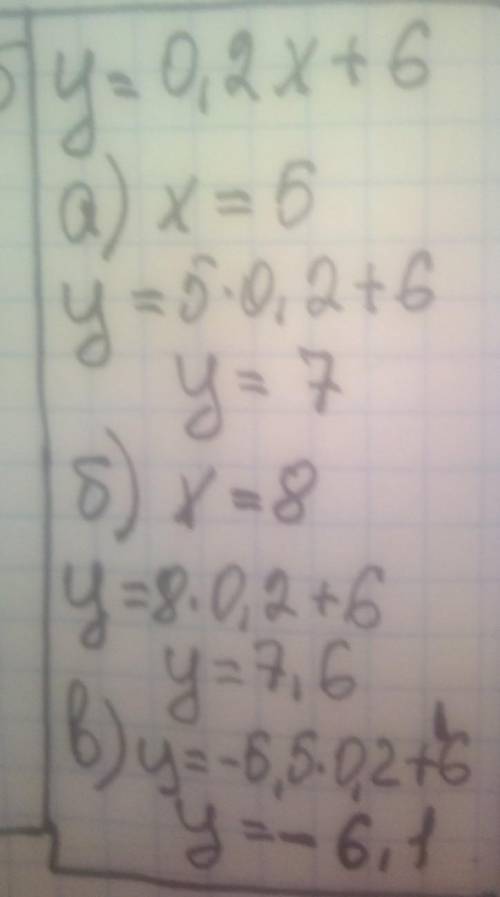 y = 0,2x + 6
а) x = 5
y = 5·0,2 + 6
y = 7
б) x = 8
y = 8·0,2 + 6
y = 7,6
в) y = -5,5·0,2 + 6
y = - 6,1